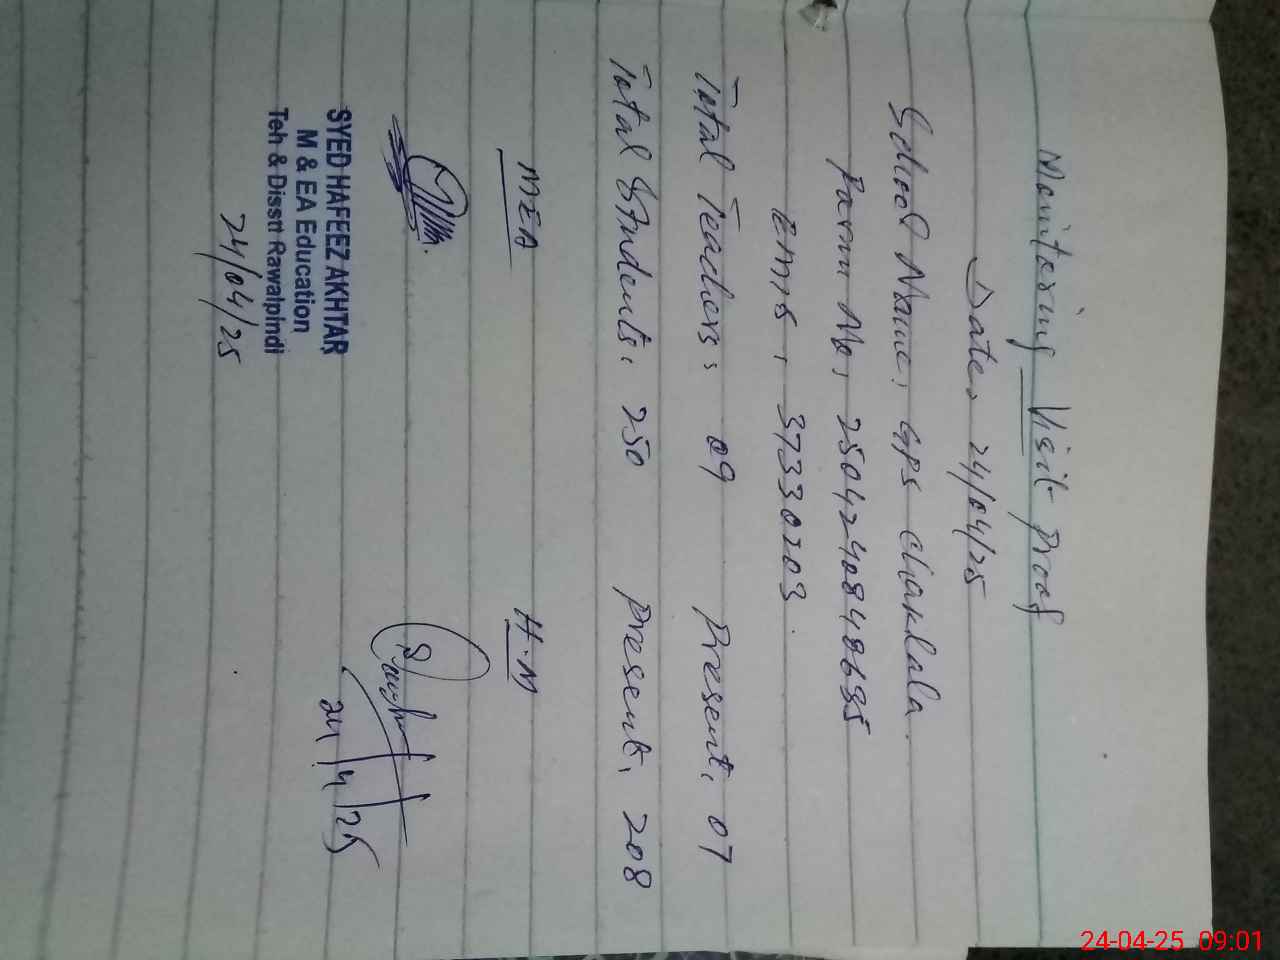 Monitoring Visit Proof
Date: 24/04/25
School Name: GPS Chaklala.
Parm No: 250424084848695
EMIS: 37330203.
Total Teachers: 09 Present: 07
Total Students: 250 Present: 208
MEA H.M
SYED HAFEEZ AKHTAR
M & EA Education
Teh & Disstt Rawalpindi
24/04/25
24/4/25
24-04-25 09:01